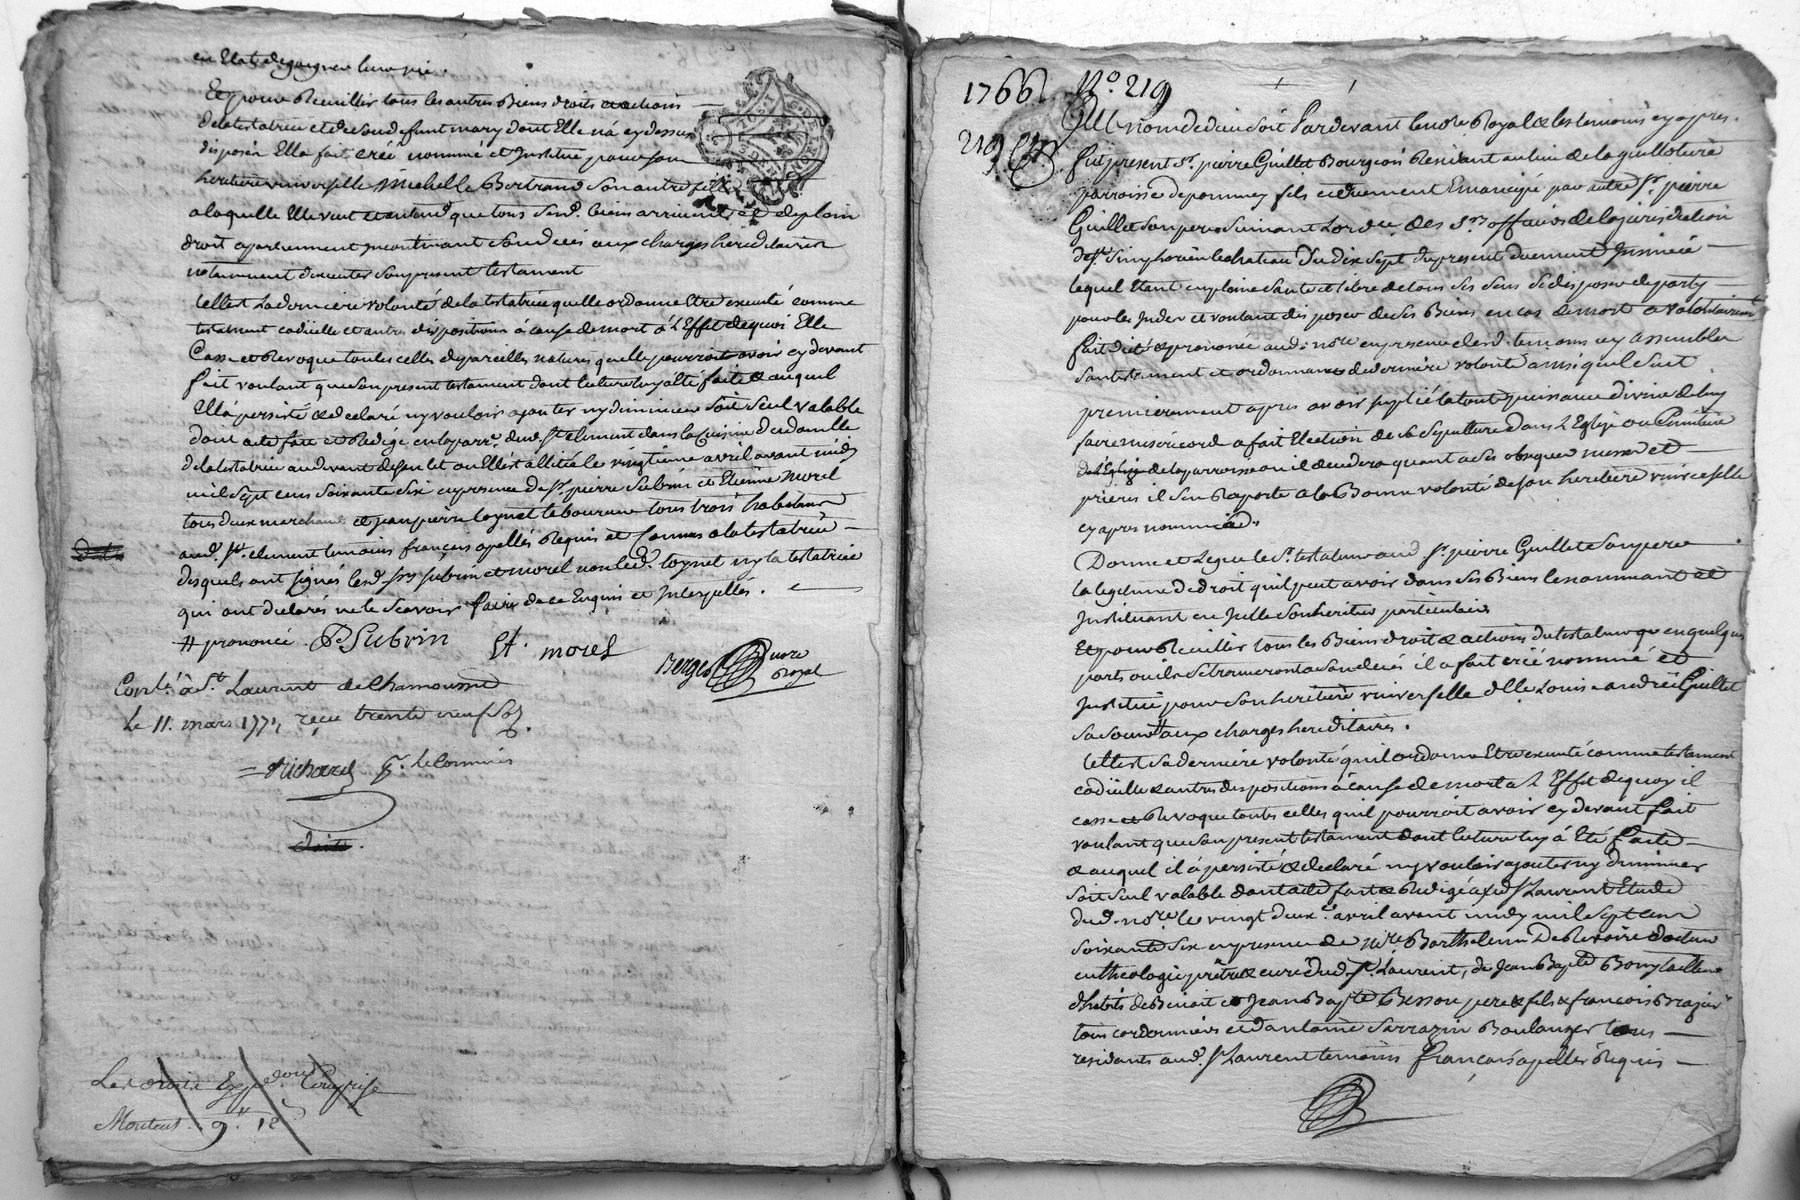 en Etat de gagner leur vie.
Et pour Recuillir tous les autres Biens droits et actions
de la testatrice et de Son defunt mary dont Elle n'a cy dessus
disposés Elle a fait créé nommé et Institué pour son
heritiere universelle Michelle Bertrand Son autre fille
a laquelle Elle veut et entend que tous Sesd. biens arrivent et de plain
droit apartiennent incontinant Son deces aux charges hereditaires
notamment d'executer Son present testament
telle est La derniere volonté de la testatrice quelle ordonne Etre executé comme
testament codicille et autres dispositions à cause de mort à L'Effet de quoi Elle
Casse et Revoque toutes celles de pareilles natures quelle pourroit avoir cy devant
fait voulant que Son present testament dont lecture luy a été faite & auquel
Ell'a persisté & declaré n'y vouloir ajouter ny diminuer Soit Seul valable
dont acte fait et Redigé en la parr.e dud. St. Clement dans la Cuisine du domaine
de la testatrice au devant de Son lit ou Elle est allitée le vingtieme avril avant midy
mil Sept cens Soixante Six en presence de Sr. pierre Subrin et Etienne Morel
tous deux marchands et jean pierre Coynet laboureur tous trois habitans
aud. St. Clement temoins françois apellés Requis et connus a la testatrice
desquels ont signés lesd. Srs Subrin et morel non led. Coynet ny la testatrice
qui ont declarés ne le Scavoir faire de ce Enquis et Interpellés.
# prononcé P. Subrin Et. morel
Berges nore Royal
Conlé à St Laurent de Chamousset
Le 11. mars 1771, reçu trente neuf Sols
Richard
droits
Monteut 9. 12
1766 N.º 219
219
Au nom de dieu Soit Par devant le no.re Royal & les temoins cy apres.
fut present Sr. pierre Guillet Bourgeois Residant au lieu de la guilloterie
parroisse de pommey fils et duement Emancipé par autre Sr. pierre
Guillet Son pere Suivant Lord.ce des Srs officiers de la jurisdiction
de St. Simphorien le chateau Du dix Sept du present duement Insinué
lequel Etant en pleine Santé et libre de tous Ses Sens Se disposer de party
pour les Indes et voulant disposer de Ses Biens en cas de mort a volontairement
fait dicté & prononcé aud. no.re en presence desd. temoins cy assemblés
Son testament et ordonnance de derniere volonté ainsi quil Suit
premierement apres avoir suplié la toute puissance divine de luy
faire misericorde a fait Election de Sa Sepulture dans L'Eglise ou Cimetiere
de L'Eglise de la parroisse ou il decedera quant a Ses obseques messes et
prieres il S'en Raporte a la Bonne volonté de Son heritiere universelle
cy apres nommée.
Donne et Legue le Sr. testateur aud. Sr. pierre Guillet Son pere
la legitime de droit quil peut avoir dans Ses Biens le nommant et
Instituant en Icelle Son heritier particulier
Et pour Recuillir tous les Biens droits & actions du testateur en quelques
parts ou ils Se trouveront a Son deces il a fait créé nommé et
Institué pour Son heritiere universelle dlle Louise andrée Guillet
Sa Soeur # aux charges hereditaires.
telle est Sa derniere volonté quil ordonne Etre executé comme testament
codicille & autres dispositions à cause de mort a L'Effet de quoy il
casse et Revoque toutes celles quil pourroit avoir cy devant fait
voulant que Son present testament dont lecture luy à Eté faite
& auquel il à persisté & declaré n'y vouloir ajouter ny diminuer
Soit Seul valable dont acte fait & Redigé aud. St Laurent Etude
dud. no.re le vingt deux.e avril avant midy mil Sept cens
Soixante Six en presence de M.re Barthelemi De Revoire docteur
en theologie prêtre & curé dud. St. Laurent, de Jean Bapte Bony tailleur
d'habits de Benoit et Jean Bapte Besson pere & fils & francois Brazier
tous cordonniers et d'antoine Sarrazin Boulanger tous
residants aud. St Laurent temoins françois apellés Requis